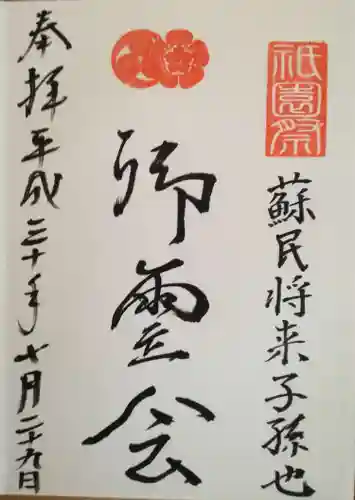 祇園祭
蘇民将来子孫也
御靈会
奉拝平成三十年七月二十九日